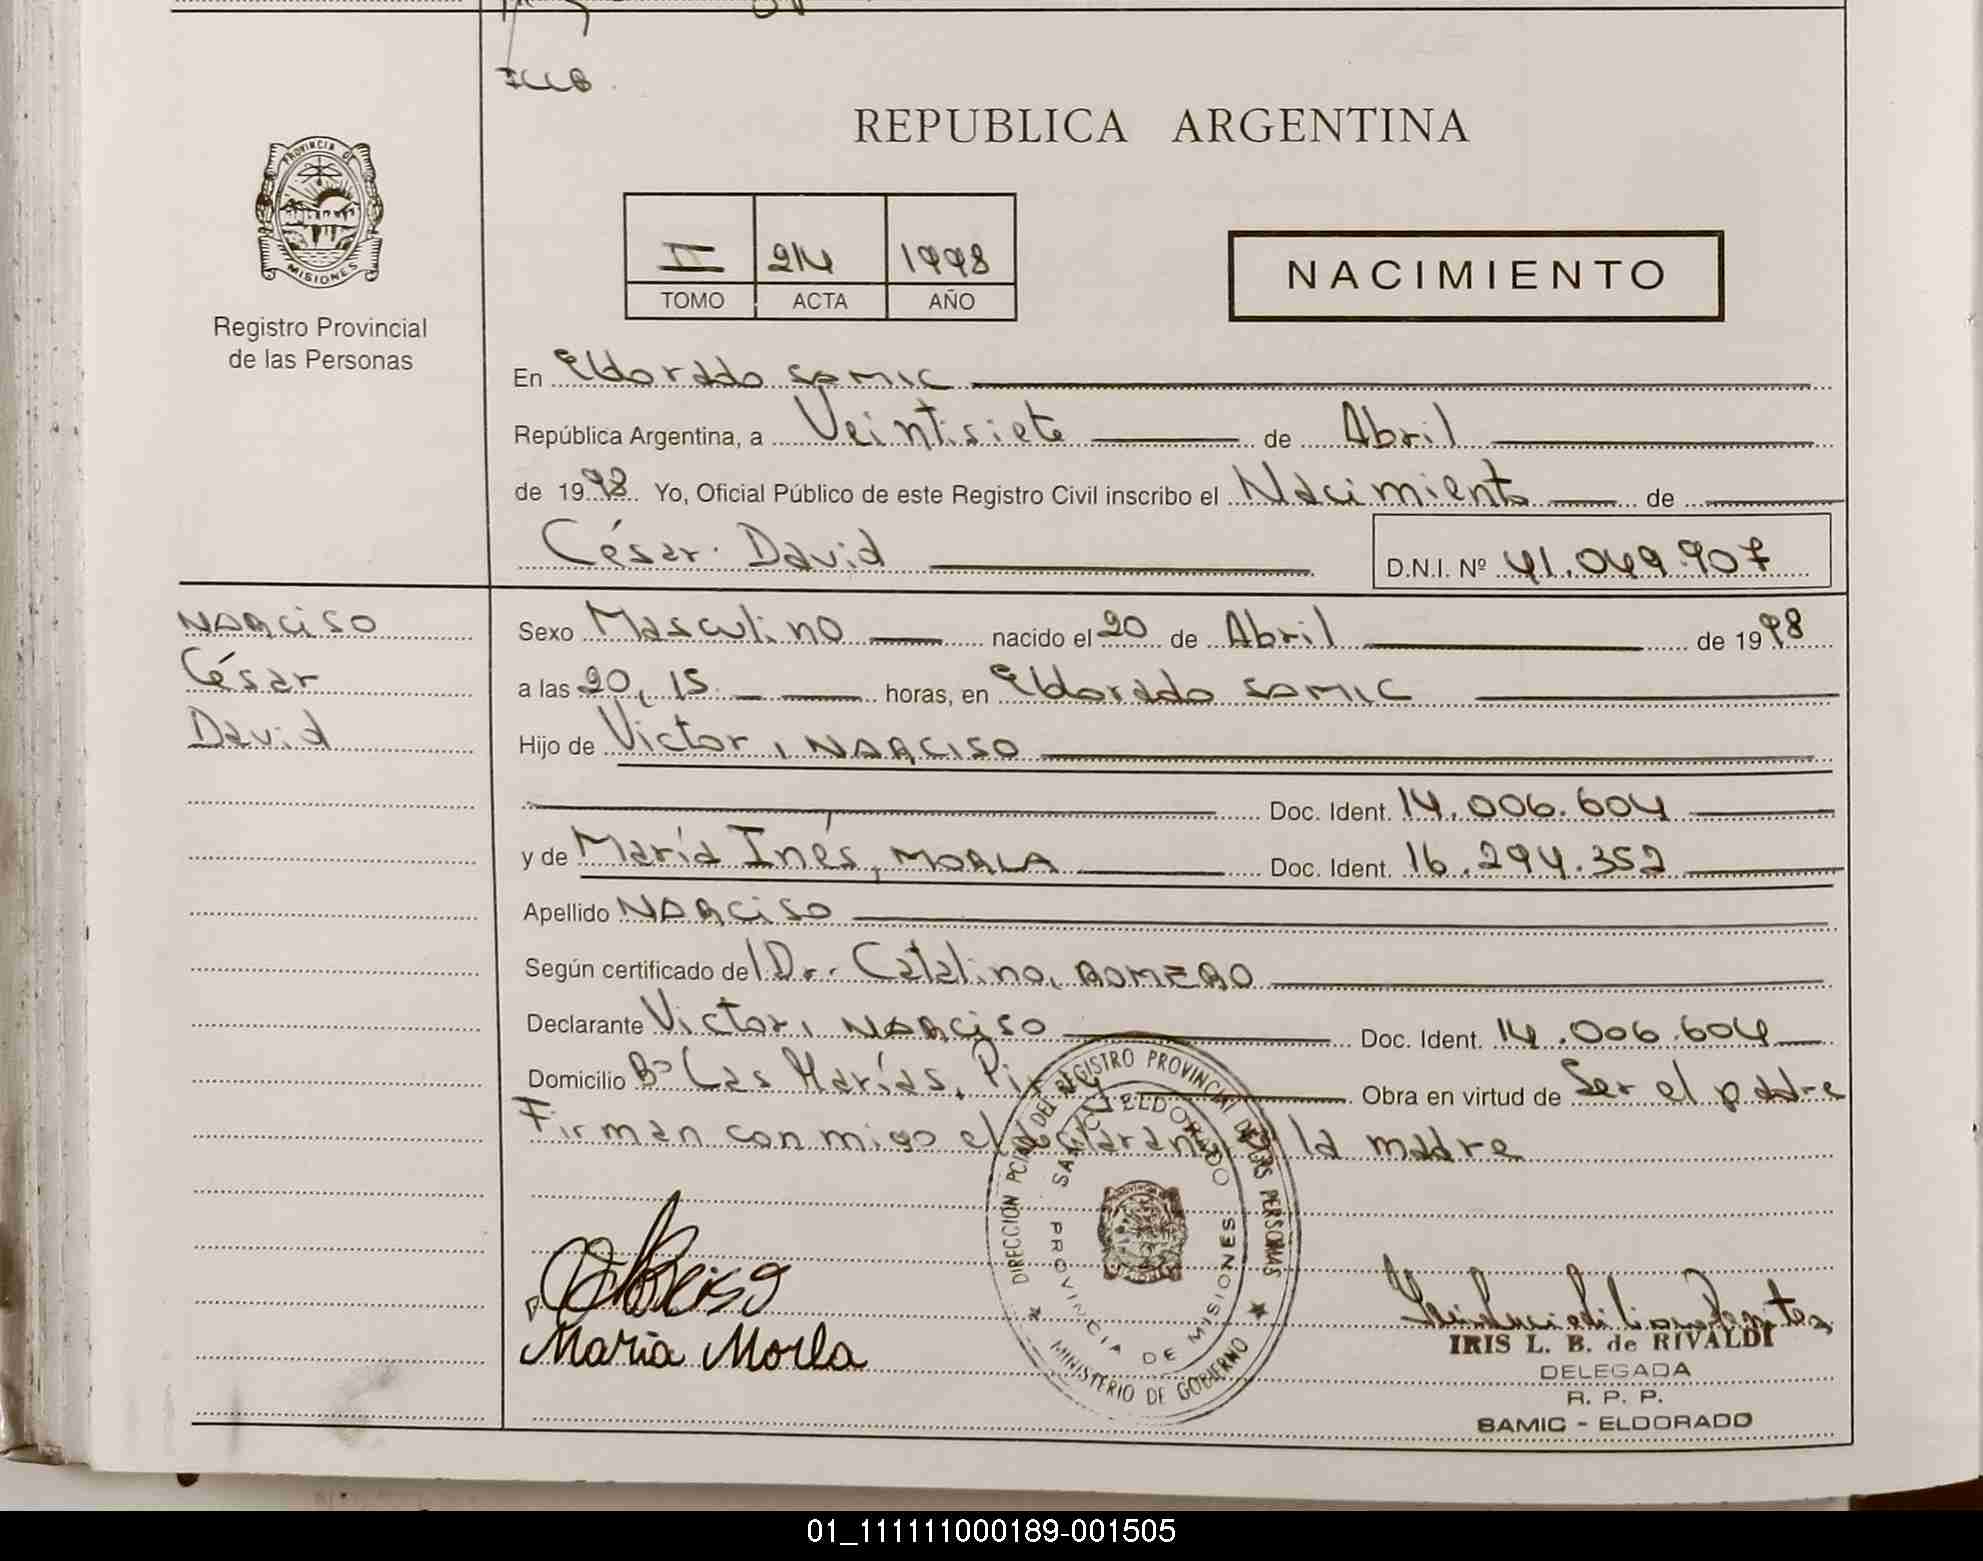 ILLB.
REPUBLICA ARGENTINA
PROVINCIA DE
MISIONES
Registro Provincial
de las Personas
II 214 1998
TOMO ACTA AÑO
NACIMIENTO
En Eldorado SAMIC
República Argentina, a Veintisiete de Abril
de 1998 Yo, Oficial Público de este Registro Civil inscribo el Nacimiento de
César David
D.N.I. Nº 41.049.907
NARCISO
César
David
Sexo Masculino nacido el 20 de Abril de 1998
a las 20,15 horas, en Eldorado SAMIC
Hijo de Victor, NARCISO
Doc. Ident. 14.006.604
y de María Inés, MORLA Doc. Ident. 16.294.352
Apellido NARCISO
Según certificado del Dr. Catalino, ROMERO
Declarante Victor, NARCISO Doc. Ident. 14.006.604
Domicilio Bº Las Marías, Obra en virtud de Ser el padre
Firman conmigo el declarante la madre
DIRECCION PCIAL DEL REGISTRO PROVINCIAL DE LAS PERSONAS
SAMIC ELDORADO
PROVINCIA DE MISIONES
MINISTERIO DE GOBIERNO
Narciso
Maria Morla
IRIS L. B. de RIVALDI
DELEGADA
R. P. P.
SAMIC - ELDORADO
01_111111000189-001505